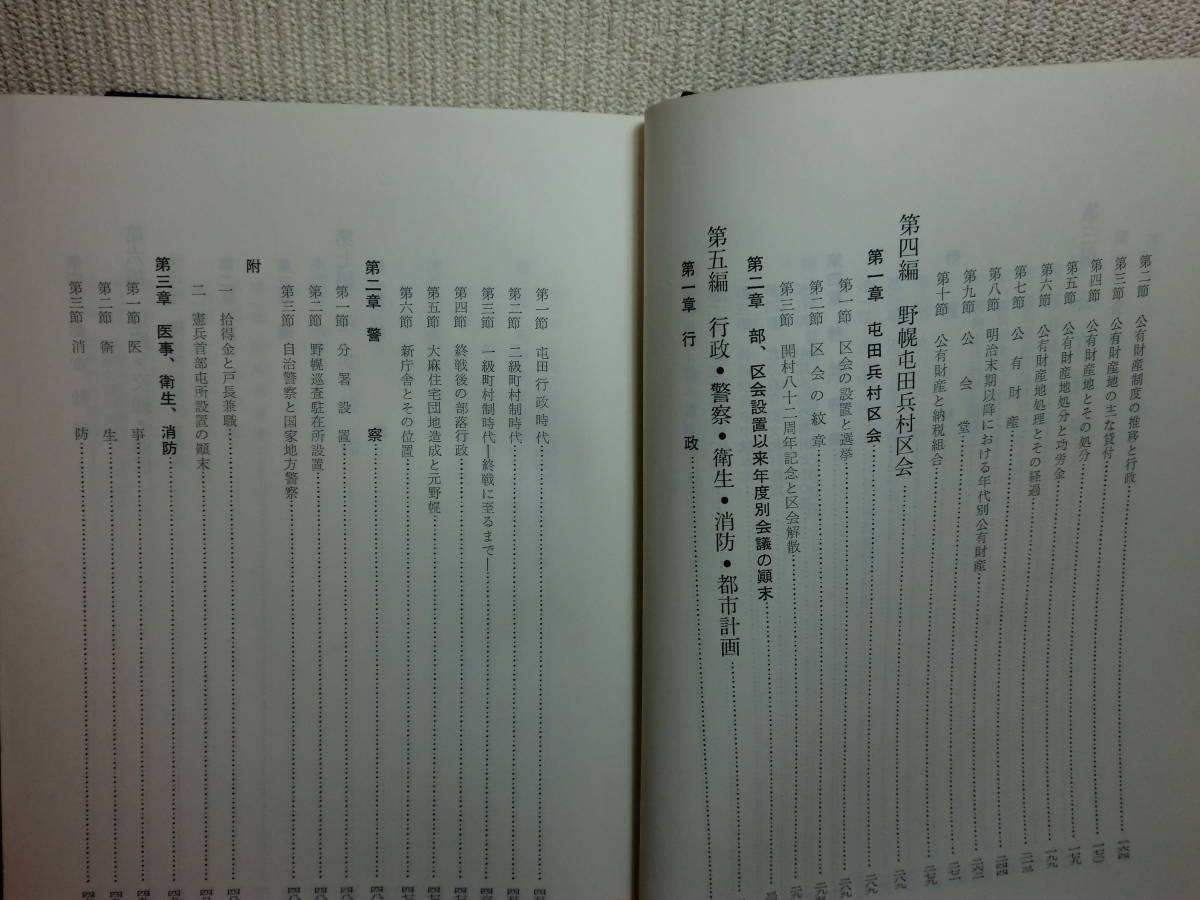 第二節　公有財産制度の推移と行政…………一六四
第三節　公有財産地の主な貸付…………一七〇
第四節　公有財産地とその処分…………一七九
第五節　公有財産地処分と功労金…………一九九
第六節　公有財産地処理とその経過…………二一三
第七節　公有財産…………二四四
第八節　明治末期以降における年代別公有財産…………二六二
第九節　公会堂…………二七一
第十節　公有財産と納税組合…………二七九
第四編　野幌屯田兵村区会…………二八九
第一章　屯田兵村区会…………二八九
第一節　区会の設置と選挙…………二八九
第二節　区会の紋章…………二九
第三節　開村八十二周年記念と区会解散…………二九
第二章　部、区会設置以来年度別会議の顚末…………
第五編　行政・警察・衛生・消防・都市計画…………
第一章　行政…………
第一節　屯田行政時代…………
第二節　二級町村制時代…………
第三節　一級町村制時代―終戦に至るまで―…………
第四節　終戦後の部落行政…………
第五節　大麻住宅団地造成と元野幌…………
第六節　新庁舎とその位置…………
第二章　警察…………
第一節　分署設置…………
第二節　野幌巡査駐在所設置…………
第三節　自治警察と国家地方警察…………
附
一　拾得金と戸長兼職…………
二　憲兵首部屯所設置の顚末…………
第三章　医事、衛生、消防…………
第一節　医事…………
第二節　衛生…………
第三節　消防…………